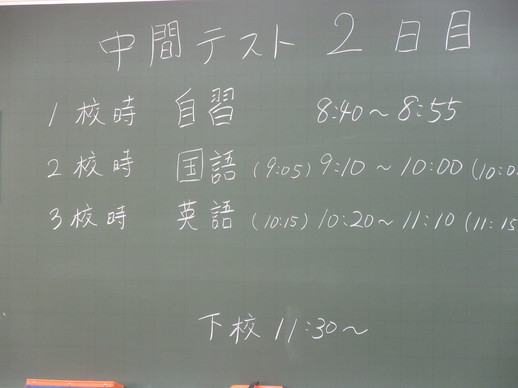 中間テスト 2日目
1校時 自習 8:40～8:55
2校時 国語 (9:05) 9:10～10:00 (10:0
3校時 英語 (10:15) 10:20～11:10 (11:15
下校 11:30～